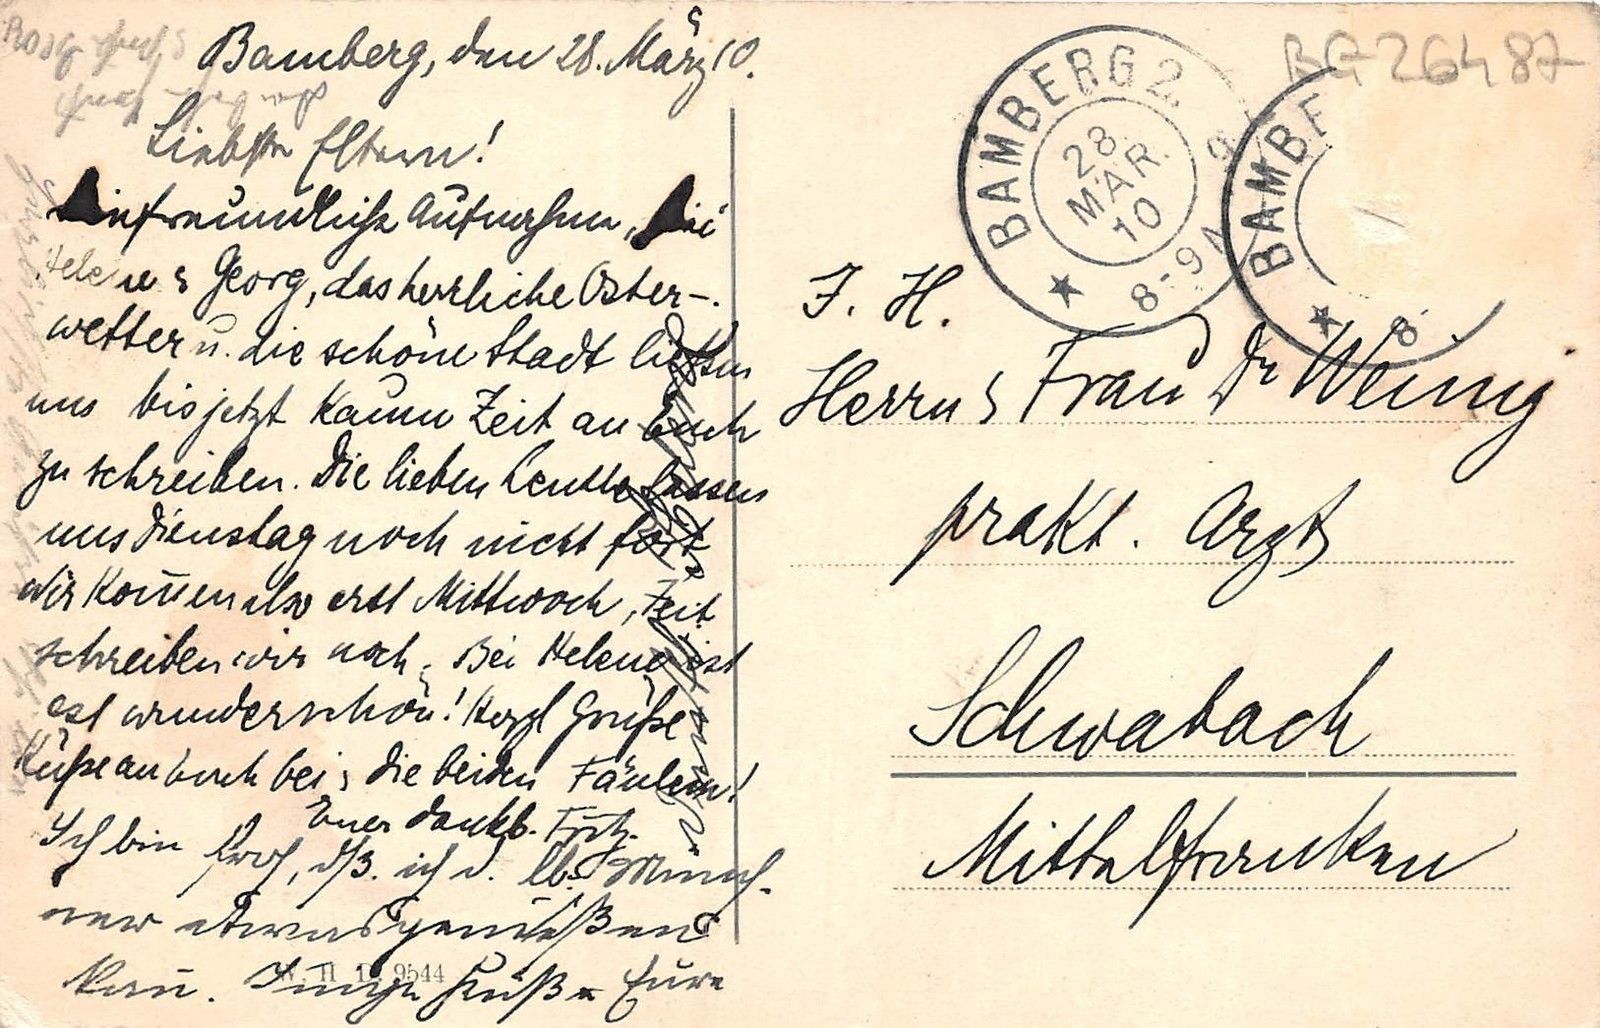 Bamberg, den 28. März 10.
Liebsten Eltern!
freundliche Aufnahme, bei
Helene & Georg, das herrliche Oster-
wetter u. die schöne Stadt ließen
uns bis jetzt kaum Zeit an Euch
zu schreiben. Die lieben Leute lassen
uns Dienstag noch nicht fort
Wir kom̄en also erst Mittwoch, Zeit
schreiben wir noch. Bei Helene ist
es wunderschön! Herzl Grüße
Küße an Euch bei & die beiden
Euer dankb. Fritz.
Ich bin froh, dß. ich d. lb.
etwas genießen
kan̄. Innige Küße Eure
BAMBERG 2.
28.
MÄR.
10
8-9
BAMBE
8
BG 26487
F. H.
Herrn & Frau Dr Weinig
prakt. Arzt
Schwabach
Mittelfranken
9544